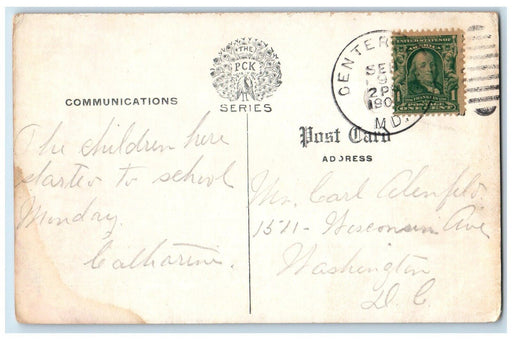 THE
PCK
SERIES
COMMUNICATIONS
CENTER
SE
9
2 P
190
MD.
Post Card
ADDRESS
The children here
started to school
Monday.
Catharine.
Mr. Carl
1511- Wisconsin Ave
Washington
D. C.